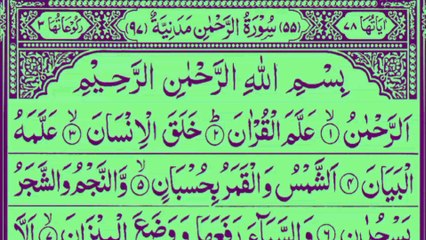 اٰیَاتُهَا ۷۸ (۵۵) سُوْرَةُ الرَّحْمٰنِ مَدَنِیَّةٌ (۹۷) رُكُوْعَاتُهَا ۳
بِسْمِ اللّٰهِ الرَّحْمٰنِ الرَّحِیْمِ
اَلرَّحْمٰنُ ۙ﴿۱﴾ عَلَّمَ الْقُرْاٰنَ ؕ﴿۲﴾ خَلَقَ الْاِنْسَانَ ۙ﴿۳﴾ عَلَّمَهُ
الْبَیَانَ ﴿۴﴾ اَلشَّمْسُ وَ الْقَمَرُ بِحُسْبَانٍ ۙ﴿۵﴾ وَّ النَّجْمُ وَ الشَّجَرُ
یَسْجُدٰنِ ﴿۶﴾ وَ السَّمَآءَ رَفَعَهَا وَ وَضَعَ الْمِیْزَانَ ۙ﴿۷﴾ اَلَّا